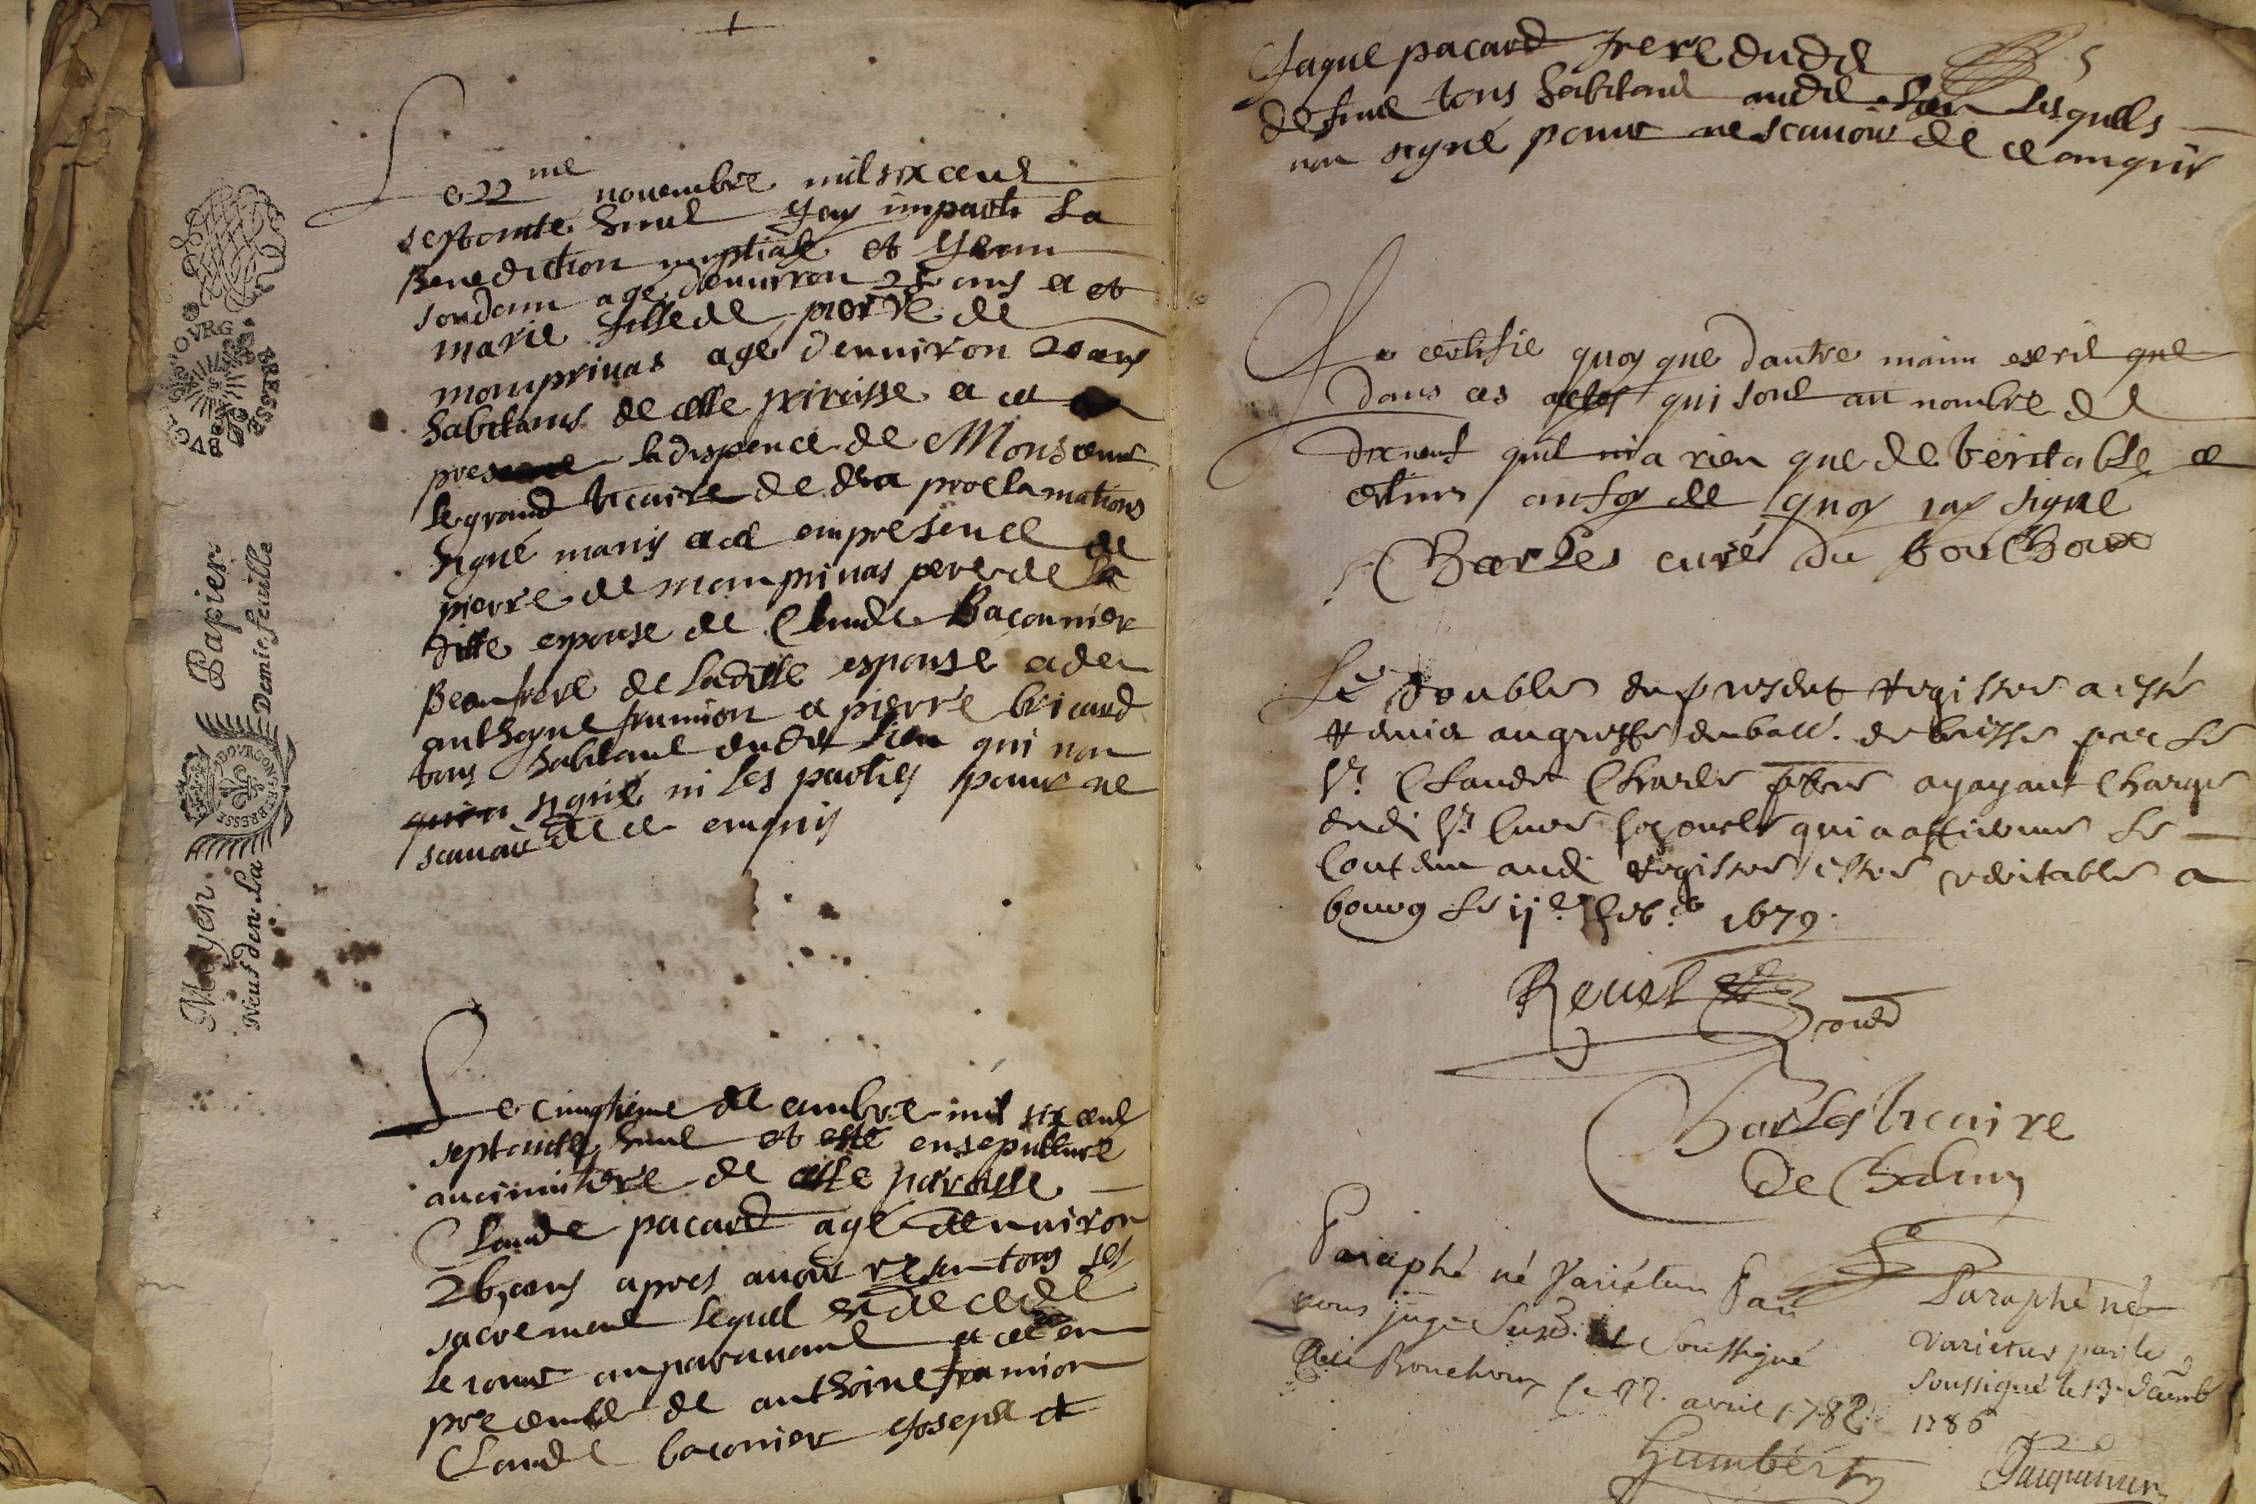 Le 22me novembre mil six cent
septante huict Jay imparti La
Benediction nuptiale et Jean
age denviron 25 ans a et
marie fille de pierre de
momprivas age denviron 20 ans
habitans de cette paroisse a ce
la dispence de Monsieur
le grand vicaire de proclamations
en presence de
pierre de momprivas pere de la
ditte espouse de Claude Baconnier
Beaufrere de laditte espouse
anthoyne framion et pierre bricard
tous habitant dudit lieu qui non
signé ni les parties pour ne
scavoir de ce enquis
Le cinqtieme decembre mil six cent
septante huict et esté ensepulturé
au cimintere de cette paroisse
Claude pacard agé denviron
26 ans apres avoir resu tous ses
sacrement lequel est decedé
le jour auparavant
de anthoine framion
Claude baconier Joseph et
Moyen Papier
Neuf den. La Demie feuille
BVG BOVRG BRESSE
BOVRGON BRESSE
Jaque pacard frere dudit
5
tous habitant audit lieu Lesquels
non signé pour ne scavoir de ce anquis
Je certifie quoy que dautre main escrit que
dans ces actes qui sont au nombre de
dixneuf quil nia rien que de veritable et
en foy de quoy jay signé
Charles curé du bouchoux
Le double du present registre a esté
remis au greffe du ball. de bresse par Le
Sr. Claude Charle ptbre ayayant Charge
dudi Sr. Curé qui a affirmé Le
Contenu audi registre estre veritable a
bourg Le 1679.
Revel
Charles vicaire
de
Paraphé né varietur Par
nous juge Soussigné
Bouchoux le 22. avril 1782
Humbert
Paraphé né
varietur par le
soussigné le 13 decemb
1786